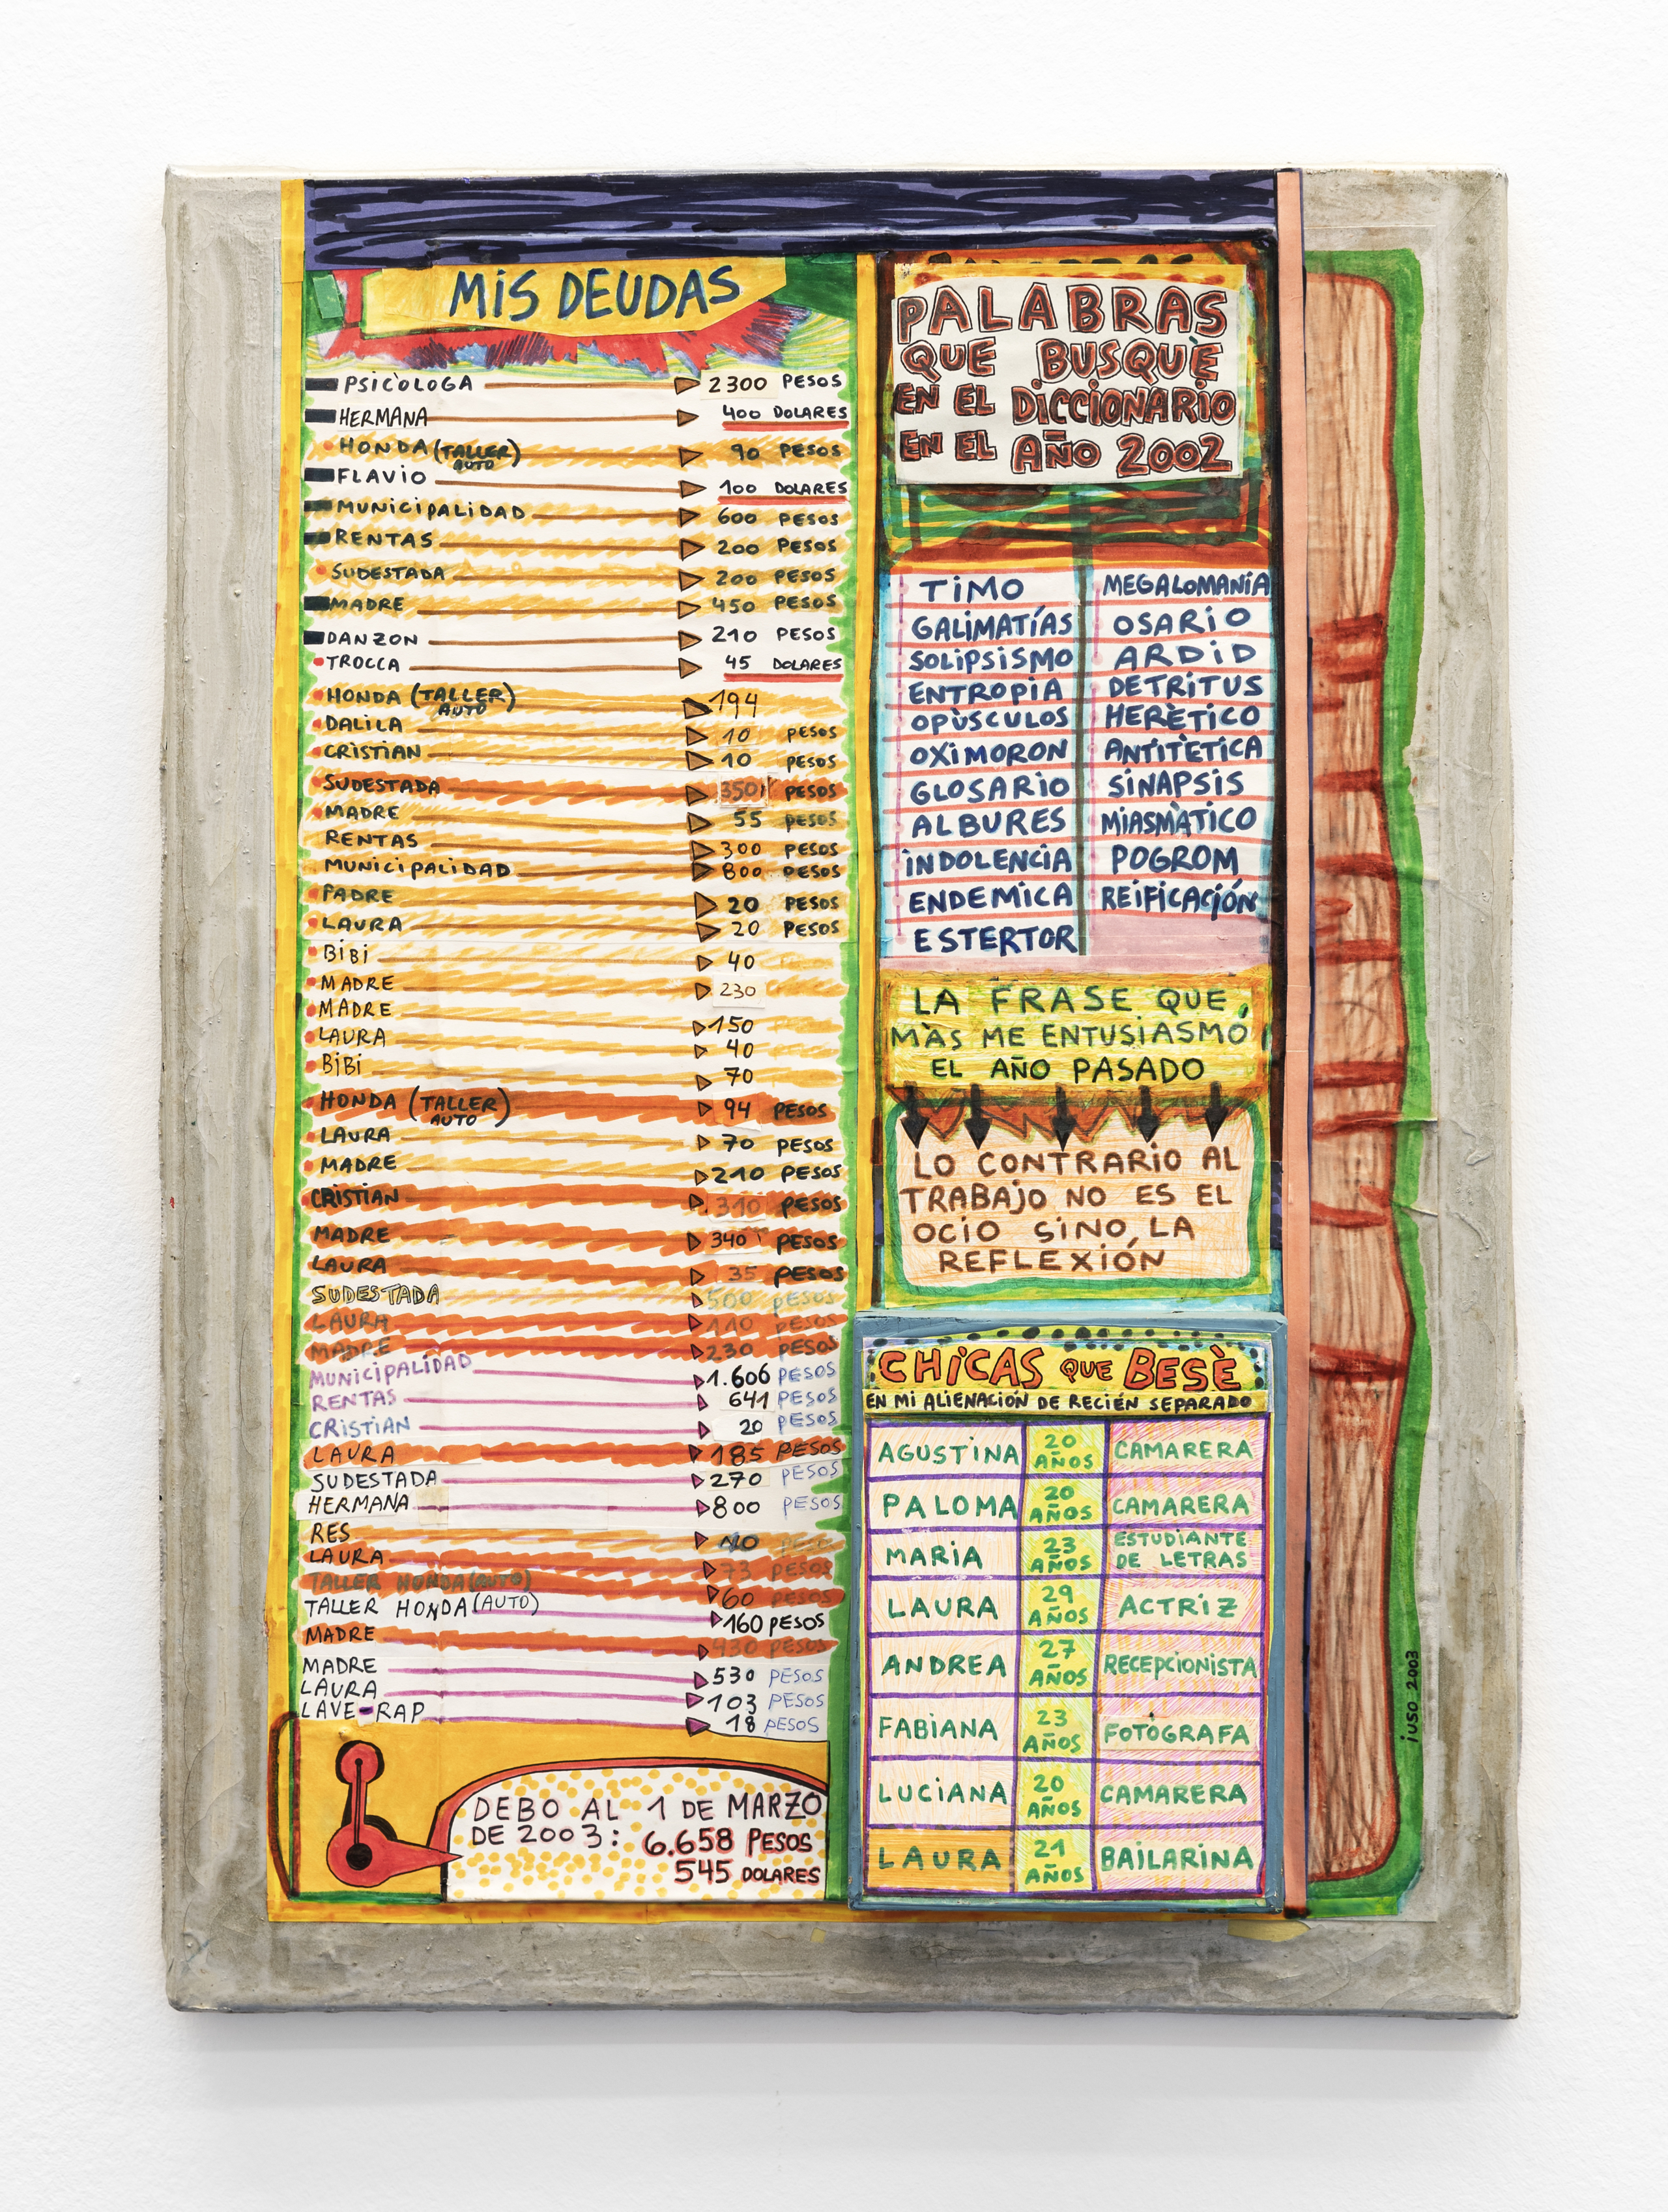 MIS DEUDAS
PSICÒLOGA 2300 PESOS
HERMANA 400 DOLARES
HONDA (TALLER) 90 PESOS
AUTO
FLAVIO 100 DOLARES
MUNICIPALIDAD 600 PESOS
RENTAS 200 PESOS
SUDESTADA 200 PESOS
MADRE 450 PESOS
DANZON 210 PESOS
TROCCA 45 DOLARES
HONDA (TALLER) 194
AUTO
DALILA 10 PESOS
CRISTIAN 10 PESOS
SUDESTADA 350 PESOS
MADRE 55 PESOS
RENTAS 300 PESOS
MUNICIPALIDAD 800 PESOS
PADRE 20 PESOS
LAURA 20 PESOS
BIBI 40
MADRE 230
MADRE 150
LAURA 40
BIBI 70
HONDA (TALLER) 94 PESOS
AUTO
LAURA 70 PESOS
MADRE 210 PESOS
CRISTIAN 310 PESOS
MADRE 340 PESOS
LAURA 35 PESOS
SUDESTADA 500 PESOS
LAURA 110 PESOS
MADRE 230 PESOS
MUNICIPALIDAD 1.606 PESOS
RENTAS 641 PESOS
CRISTIAN 20 PESOS
LAURA 185 PESOS
SUDESTADA 270 PESOS
HERMANA 800 PESOS
RES
LAURA 73 PESOS
TALLER HONDA (AUTO) 60 PESOS
TALLER HONDA (AUTO) 160 PESOS
MADRE 430 PESOS
MADRE 530 PESOS
LAURA 103 PESOS
LAVE-RAP 18 PESOS
DEBO AL 1 DE MARZO
DE 2003: 6.658 PESOS
545 DOLARES
PALABRAS
QUE BUSQUÈ
EN EL DICCIONARIO
EN EL AÑO 2002
TIMO MEGALOMANÍA
GALIMATÍAS OSARIO
SOLIPSISMO ARDID
ENTROPIA DETRITUS
OPÙSCULOS HERÈTICO
OXIMORON ANTITÈTICA
GLOSARIO SINAPSIS
ALBURES MIASMÀTICO
INDOLENCIA POGROM
ENDEMICA REIFICACIÓN
ESTERTOR
LA FRASE QUE
MÀS ME ENTUSIASMÓ
EL AÑO PASADO
LO CONTRARIO AL
TRABAJO NO ES EL
OCIO SINO, LA
REFLEXIÓN
CHICAS QUE BESÈ
EN MI ALIENACIÓN DE RECIÉN SEPARADO
AGUSTINA 20 AÑOS CAMARERA
PALOMA 20 AÑOS CAMARERA
MARIA 23 AÑOS ESTUDIANTE DE LETRAS
LAURA 29 AÑOS ACTRIZ
ANDREA 27 AÑOS RECEPCIONISTA
FABIANA 23 AÑOS FOTÒGRAFA
LUCIANA 20 AÑOS CAMARERA
LAURA 21 AÑOS BAILARINA
iUSO 2003